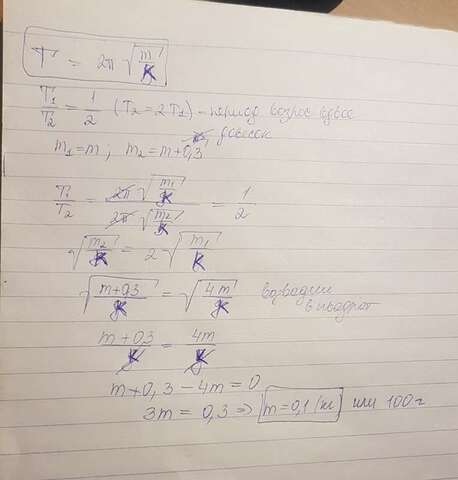 T = 2π √(m/k)
T₁/T₂ = 1/2 (T₂ = 2T₁) – период возрос вдвое
m₁ = m ; m₂ = m + 0,3 довесок
T₁/T₂ = 2π √(m₁/k) / 2π √(m₂/k) = 1/2
√(m₂/k) = 2 √(m₁/k)
√((m+0,3)/k) = √(4m/k) возводим
в квадрат
(m + 0,3)/k = 4m/k
m + 0,3 – 4m = 0
3m = 0,3 ⇒ m = 0,1 (кг) или 100 г